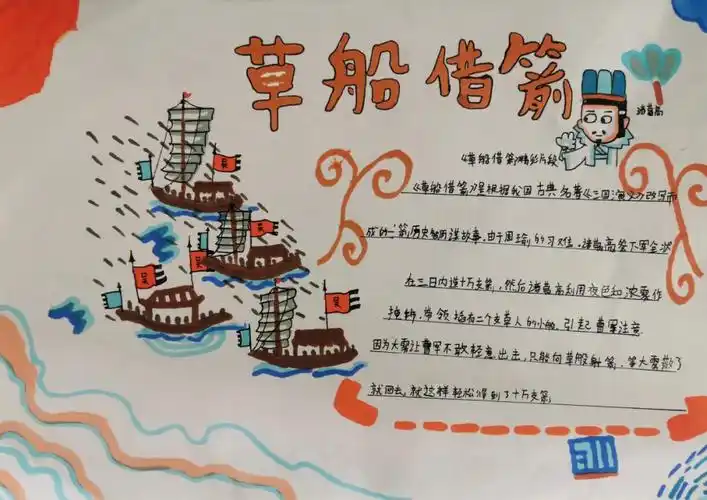 草船借箭
诸葛亮
《草船借箭》精彩片段
《草船借箭》是根据我国古典名著《三国演义》改写而
成的一篇历史智谋故事,由于周瑜的刁难,诸葛亮签下军令状
在三日内造十万支箭,然后诸葛亮利用夜色和浓雾作
掩护,带领插有二个支草人的小船,引起曹军注意
因为大雾让曹军不敢轻意出主,只能向草船射箭,等大雾散了
就回去,就这样轻松得到了十万支箭
吴
吴
吴
吴